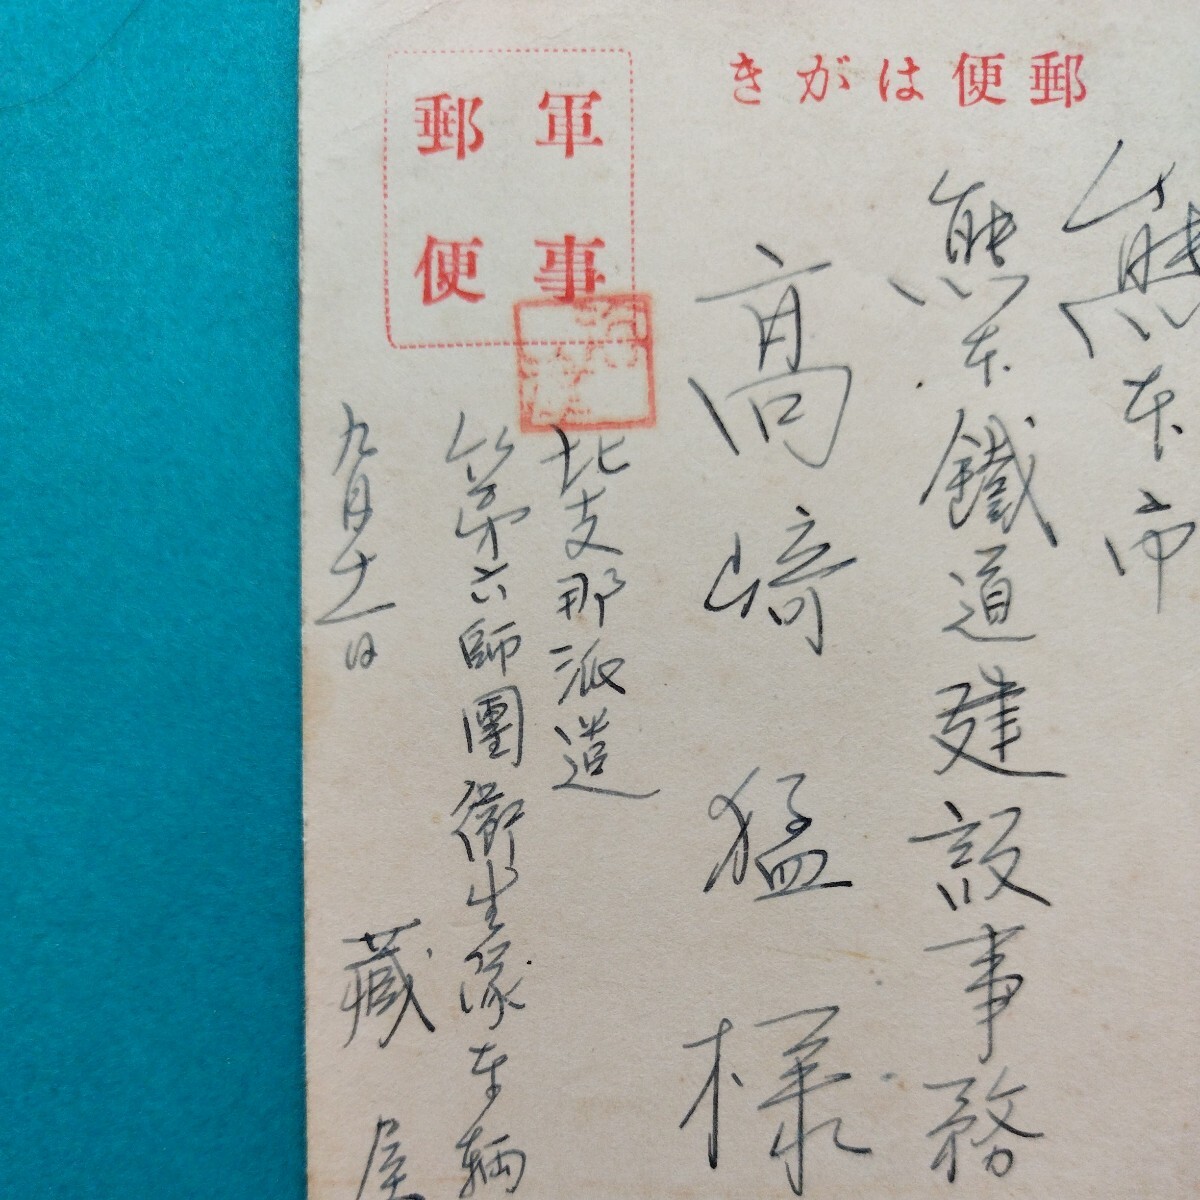 郵便はがき
軍事
郵便
熊本市
熊本鐵道建設事務
高崎猛様
北支那派遣
第六師團衛生隊車輌
九月十一日
藏屋